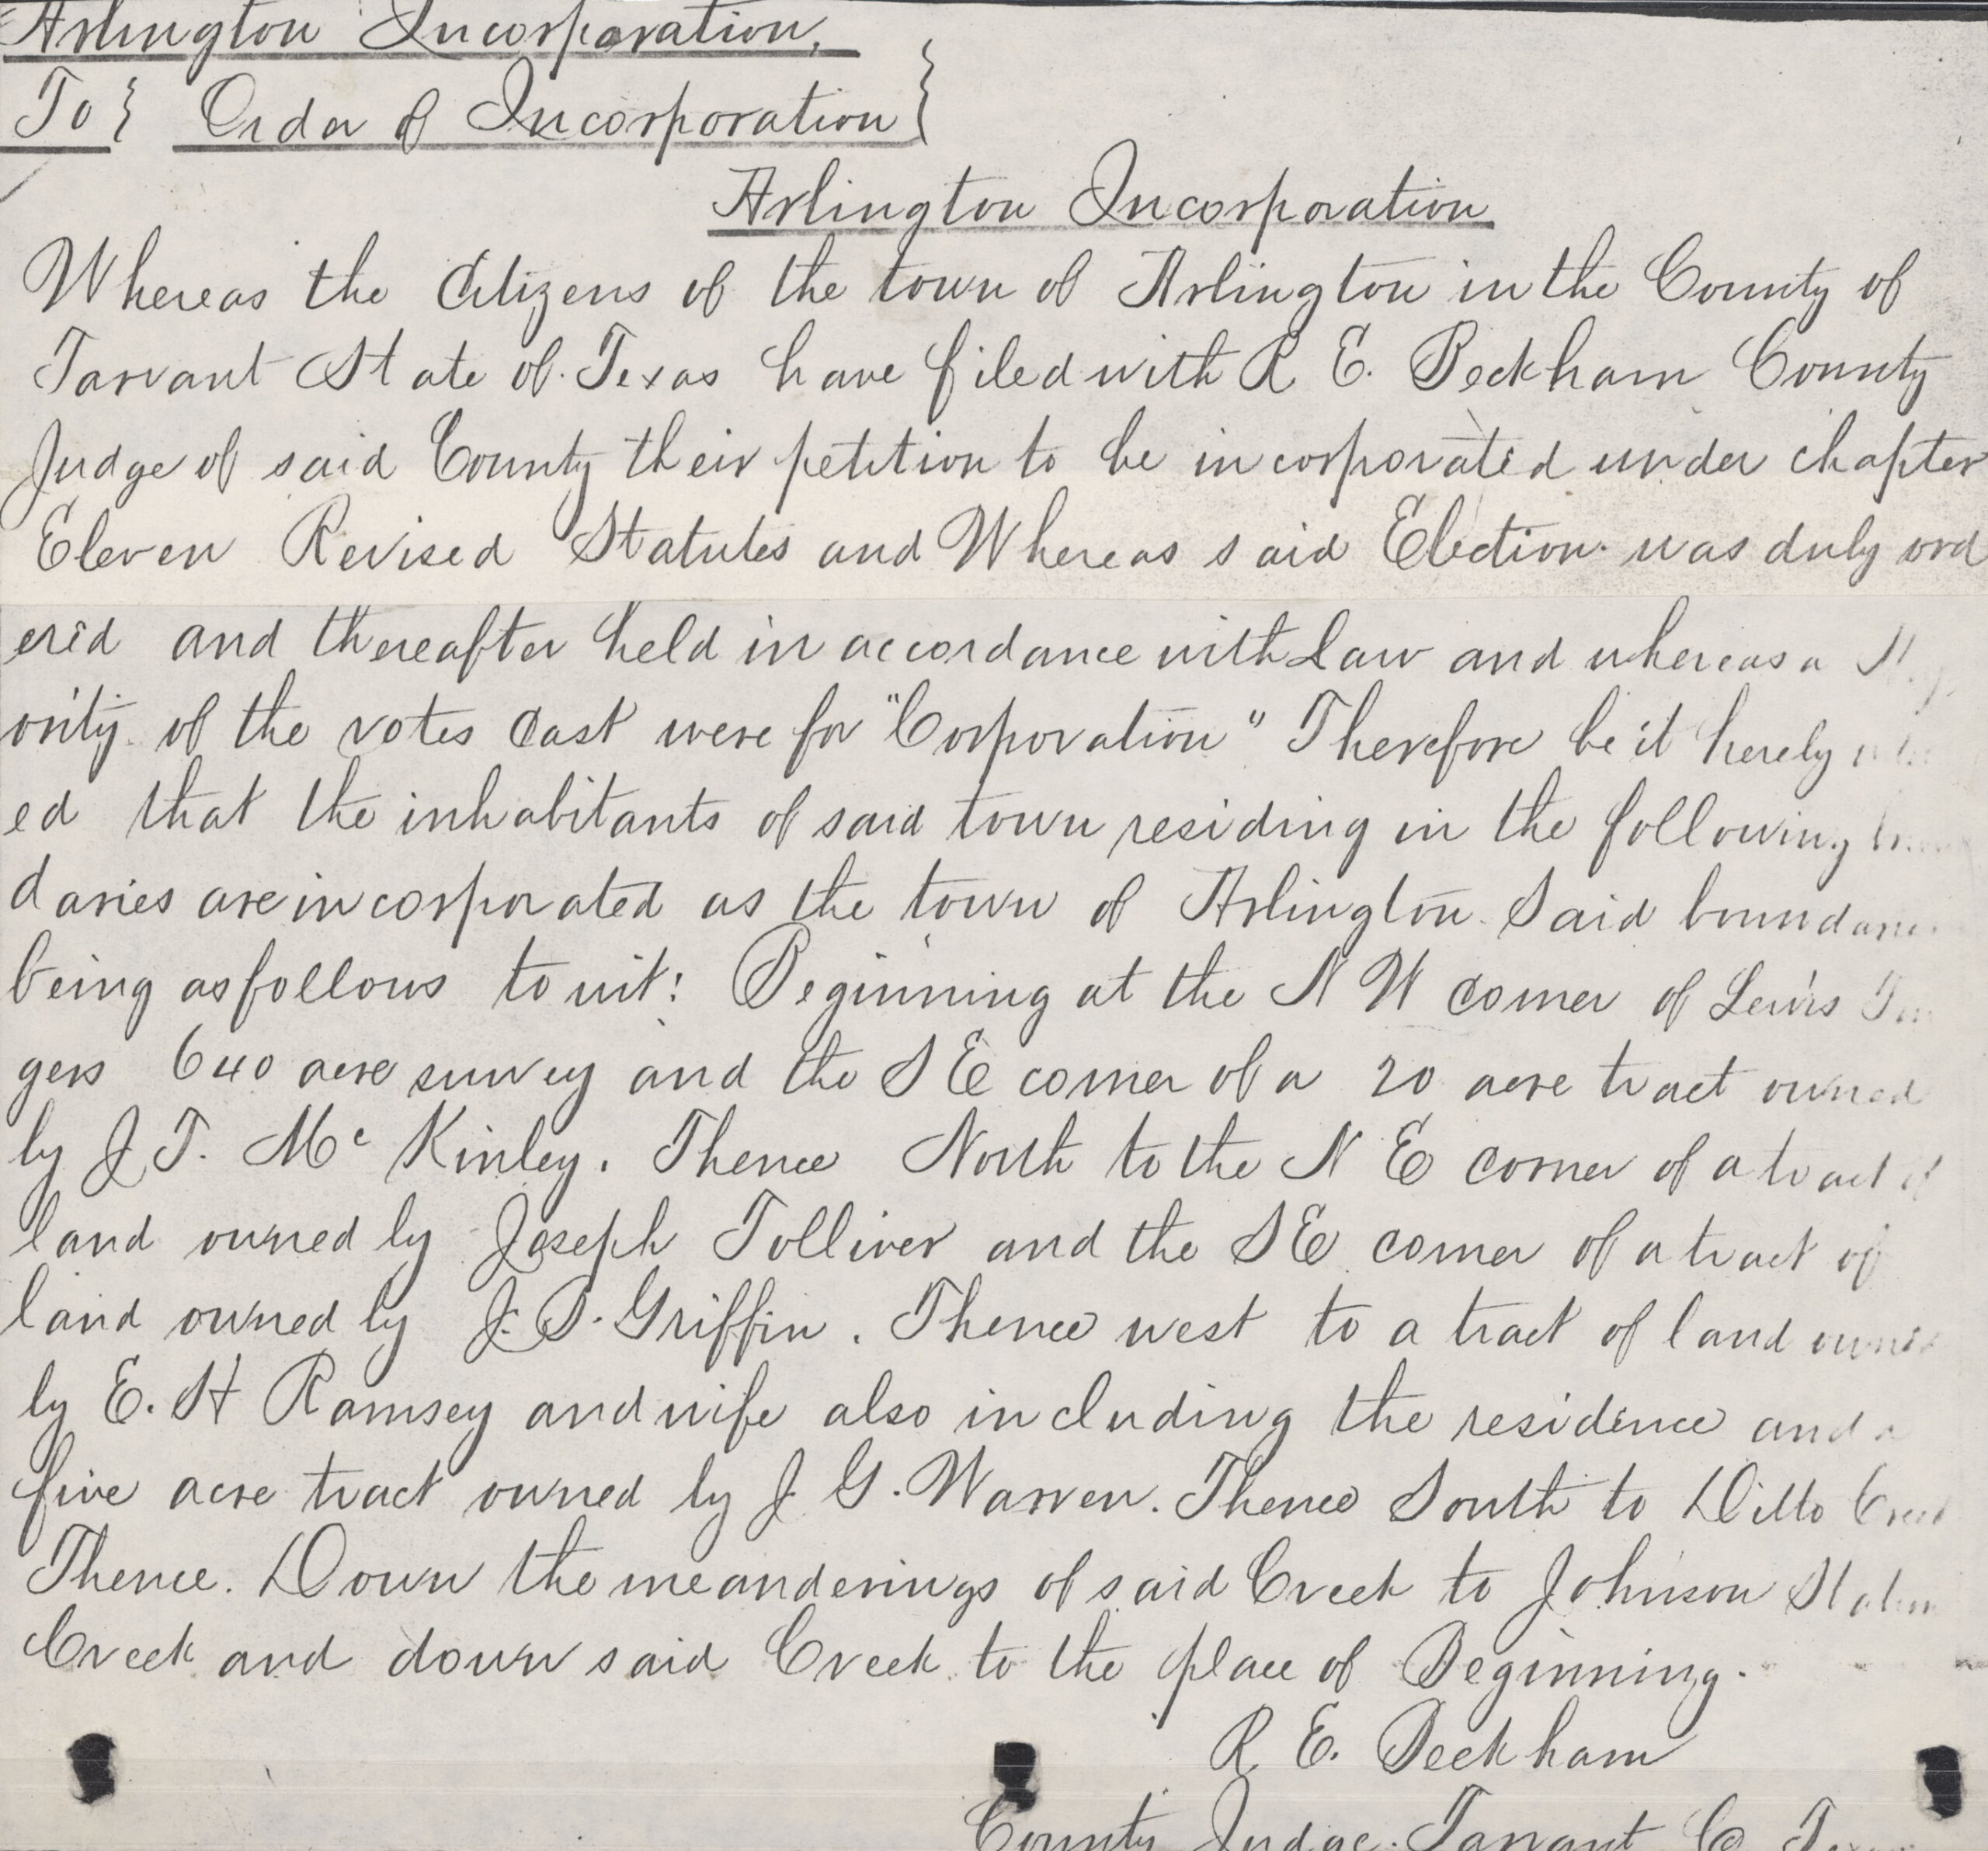 Arlington Incorporation,
To } Order of Incorporation }
Arlington Incorporation
Whereas the Citizens of the town of Arlington in the County of
Tarrant State of Texas have filed with R E. Beckham County
Judge of said County their petition to be incorporated under chapter
Eleven Revised Statutes and Whereas said Election was duly ord
ered and thereafter held in accordance with Law and whereas a
ority of the votes cast were for "Corporation" Therefore be it hereby
ed that the inhabitants of said town residing in the following
daries are incorporated as the town of Arlington. Said boundaries
being as follows to wit: Beginning at the N W corner of Lewis
gers 640 acre survey and the S E corner of a 20 acre tract owned
by J T. McKinley. Thence North to the N E corner of a tract of
land owned by Joseph Tolliver and the S E corner of a tract of
land owned by J. D. Griffin. Thence west to a tract of land owned
by E. H Ramsey and wife also including the residence and a
five acre tract owned by J G. Warren. Thence South to Ditto Creek
Thence. Down the meanderings of said Creek to Johnson Station
Creek and down said Creek to the place of Beginning.
R. E. Beckham
County Judge. Tarrant Co Texas